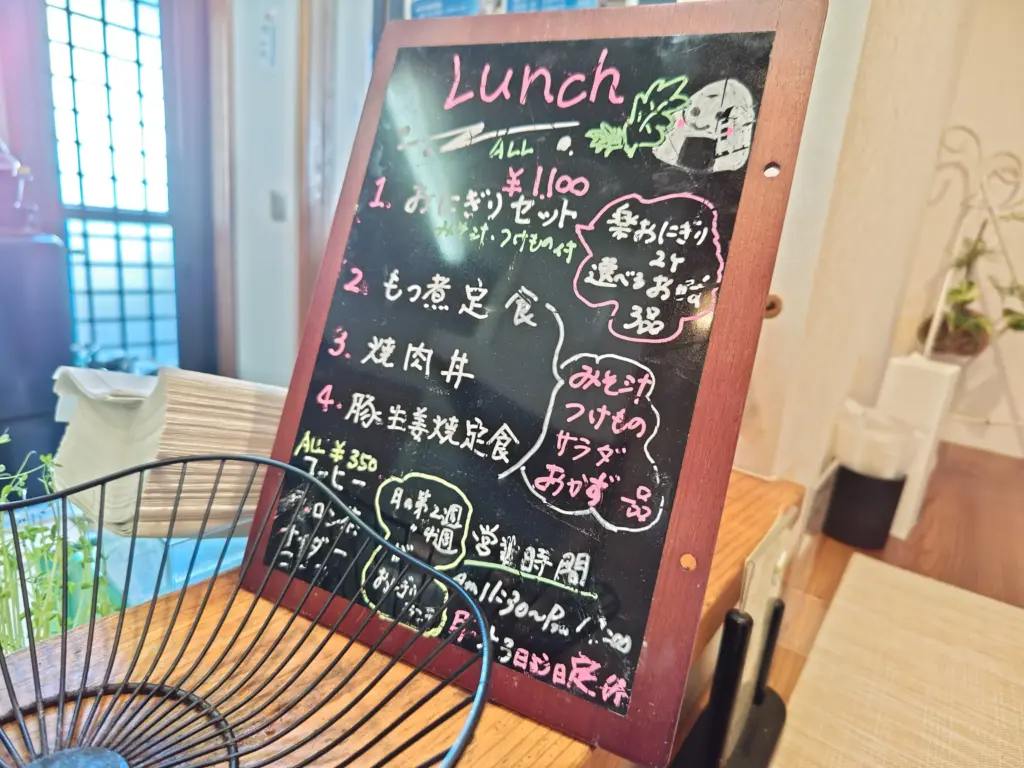 Lunch
ALL
¥1,100
1. おにぎりセット
みそ汁・つけもの付
楽おにぎり
2ケ
選べるおかず
3品
2. もつ煮定食
3. 焼肉丼
4. 豚生姜焼定食
みそ汁
つけもの
サラダ
おかず一品
ALL ¥350
コーヒー
月の第2週
4週
営業時間
am11:30〜
定休